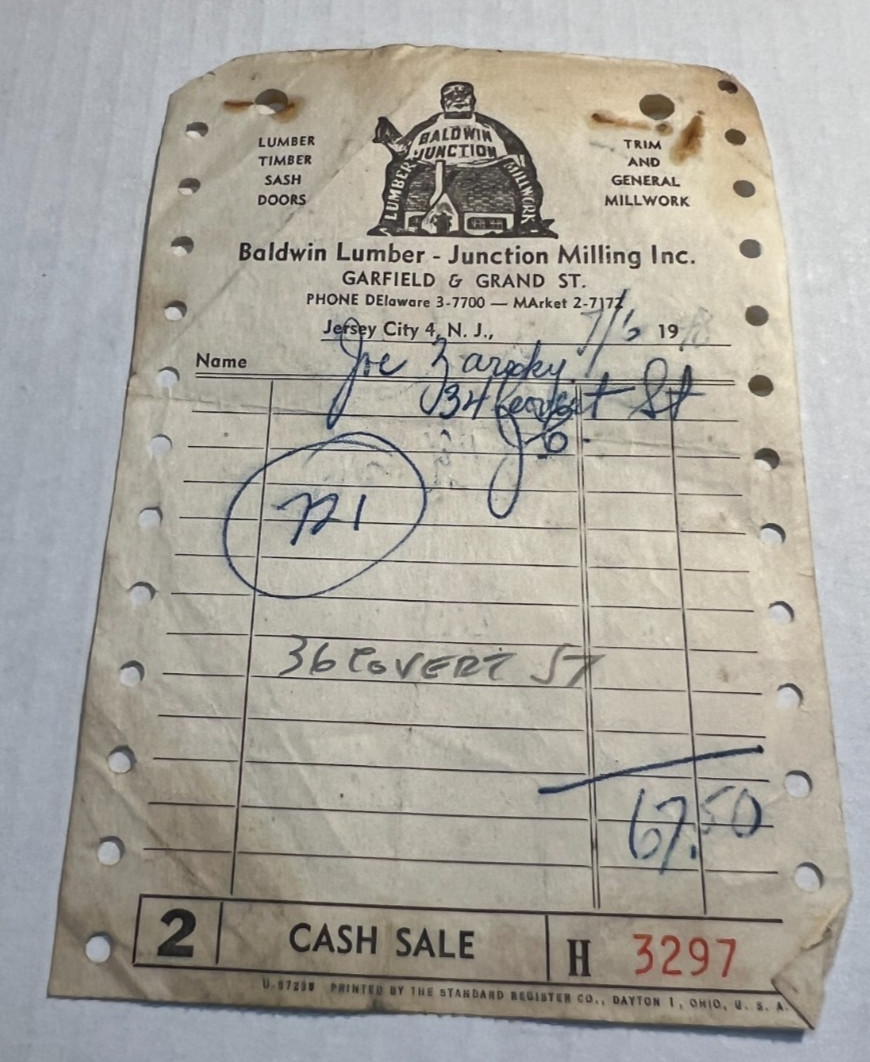 LUMBER
TIMBER
SASH
DOORS
BALDWIN
JUNCTION
LUMBER
MILLWORK
TRIM
AND
GENERAL
MILLWORK
Baldwin Lumber - Junction Milling Inc.
GARFIELD & GRAND ST.
PHONE DElaware 3-7700 — MArket 2-7172
Jersey City 4, N. J., 7/6 19
Name Joe
34 St
721
36 COVERT ST
67.50
2 CASH SALE H 3297
PRINTED BY THE STANDARD REGISTER CO., DAYTON 1, OHIO, U. S. A.